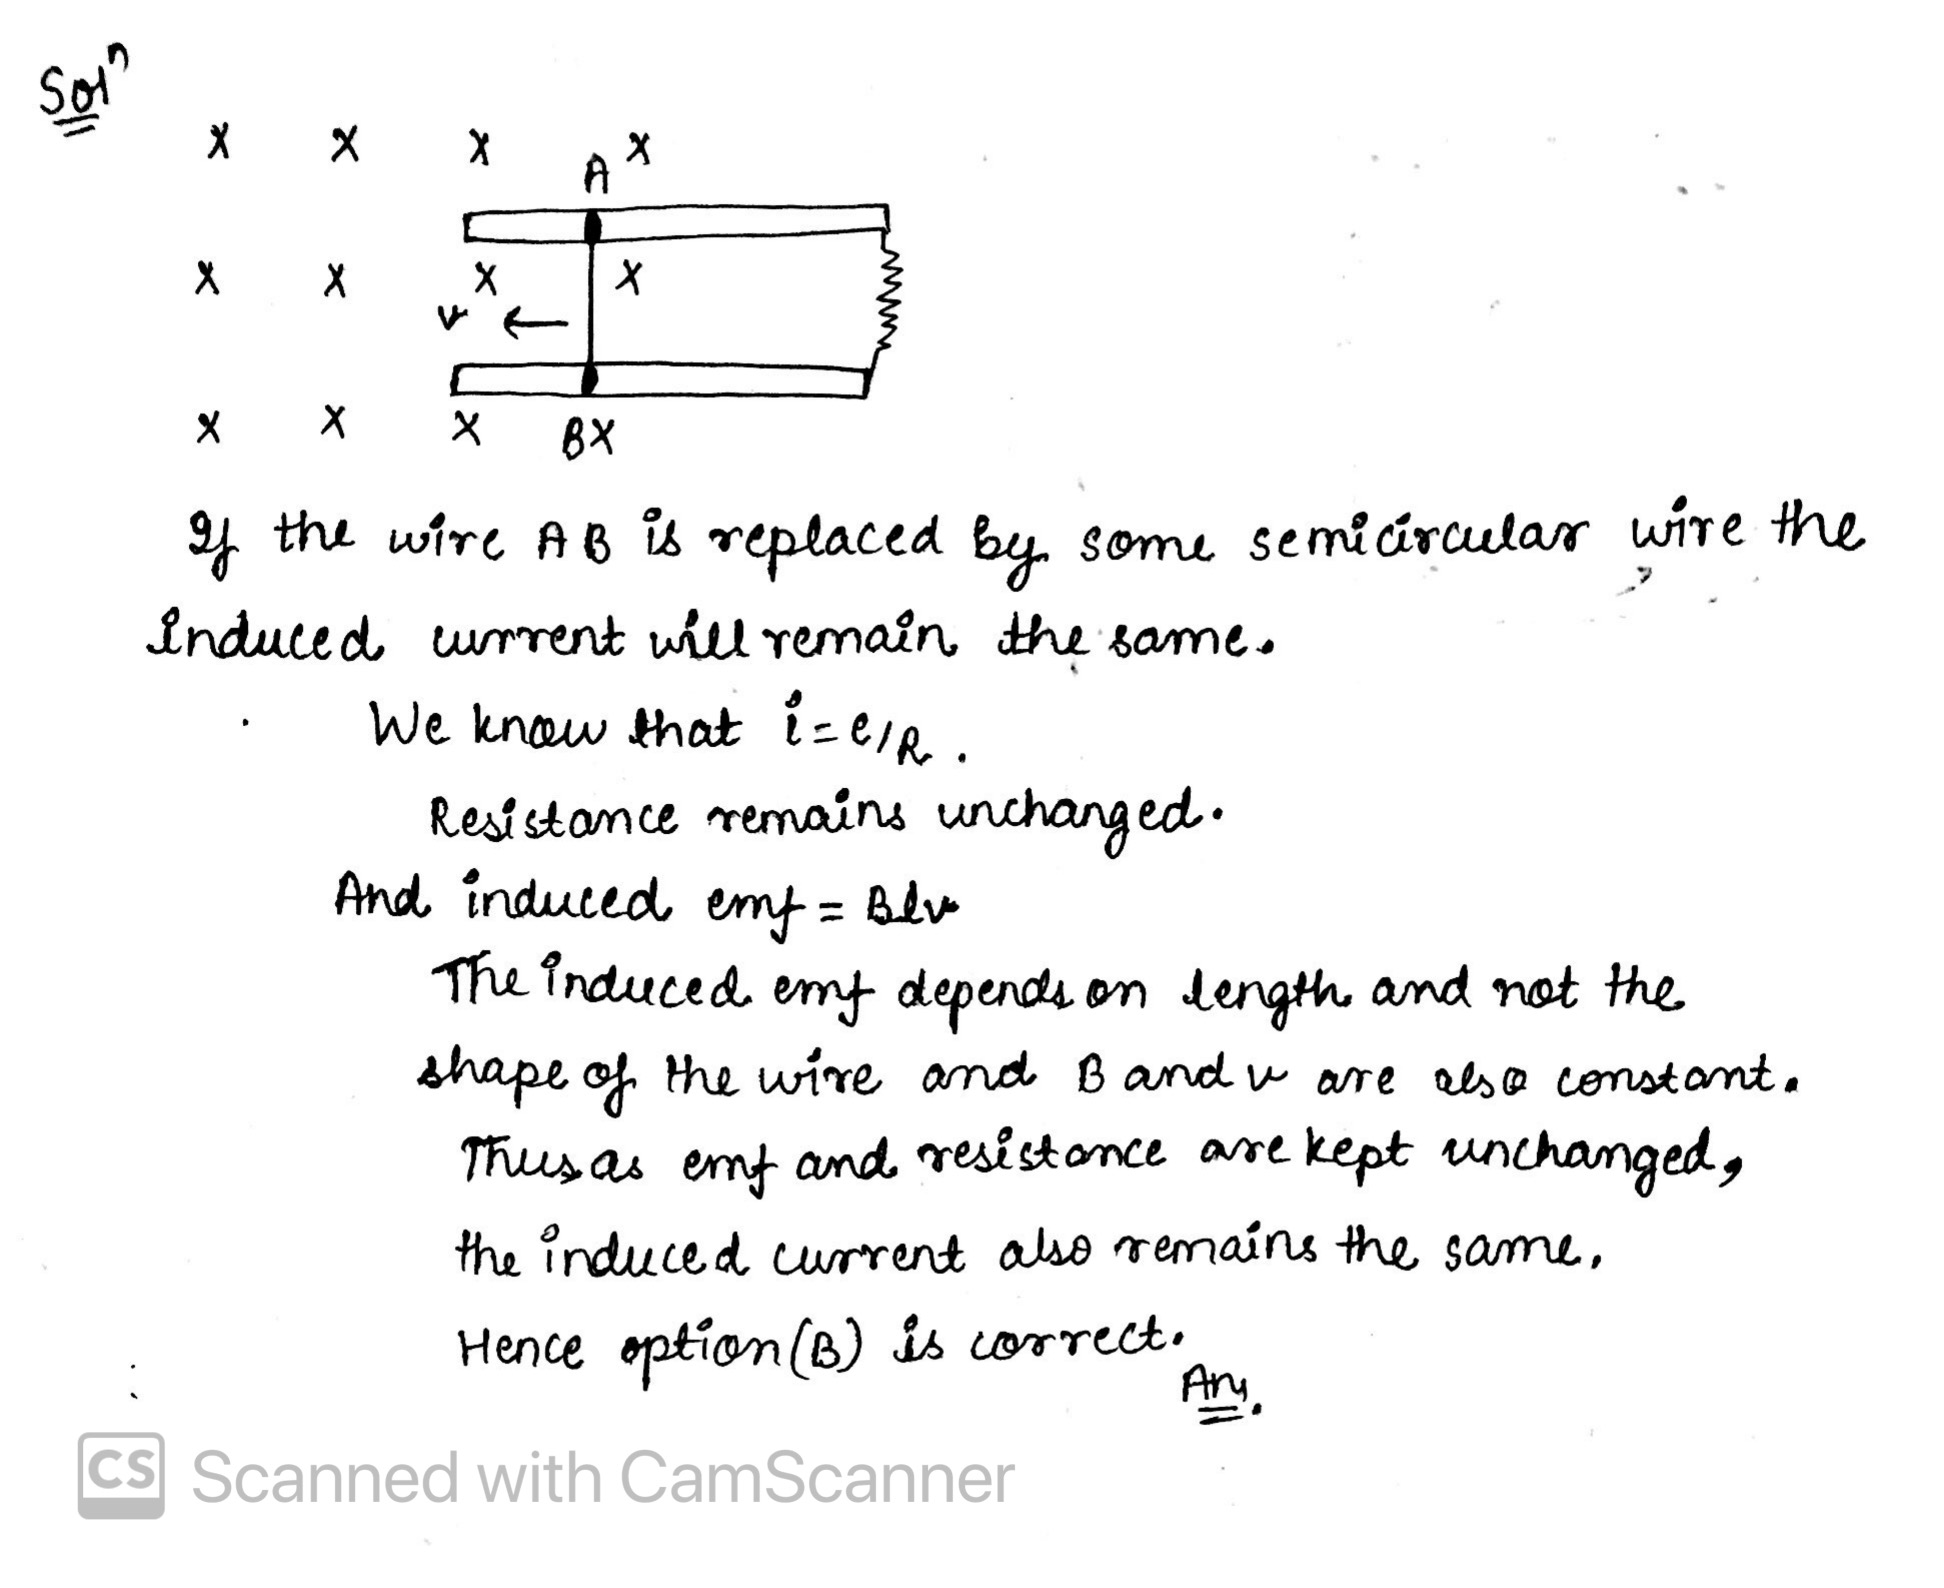 Solⁿ
X X X A X
X X X X
v ←
X X X B X
If the wire AB is replaced by some semicircular wire the
induced current will remain the same.
We know that i = e/R.
Resistance remains unchanged.
And induced emf = Blv
The induced emf depends on length and not the
shape of the wire and B and v are also constant.
Thus as emf and resistance are kept unchanged,
the induced current also remains the same.
Hence option (B) is correct.
Ans.
CS Scanned with CamScanner